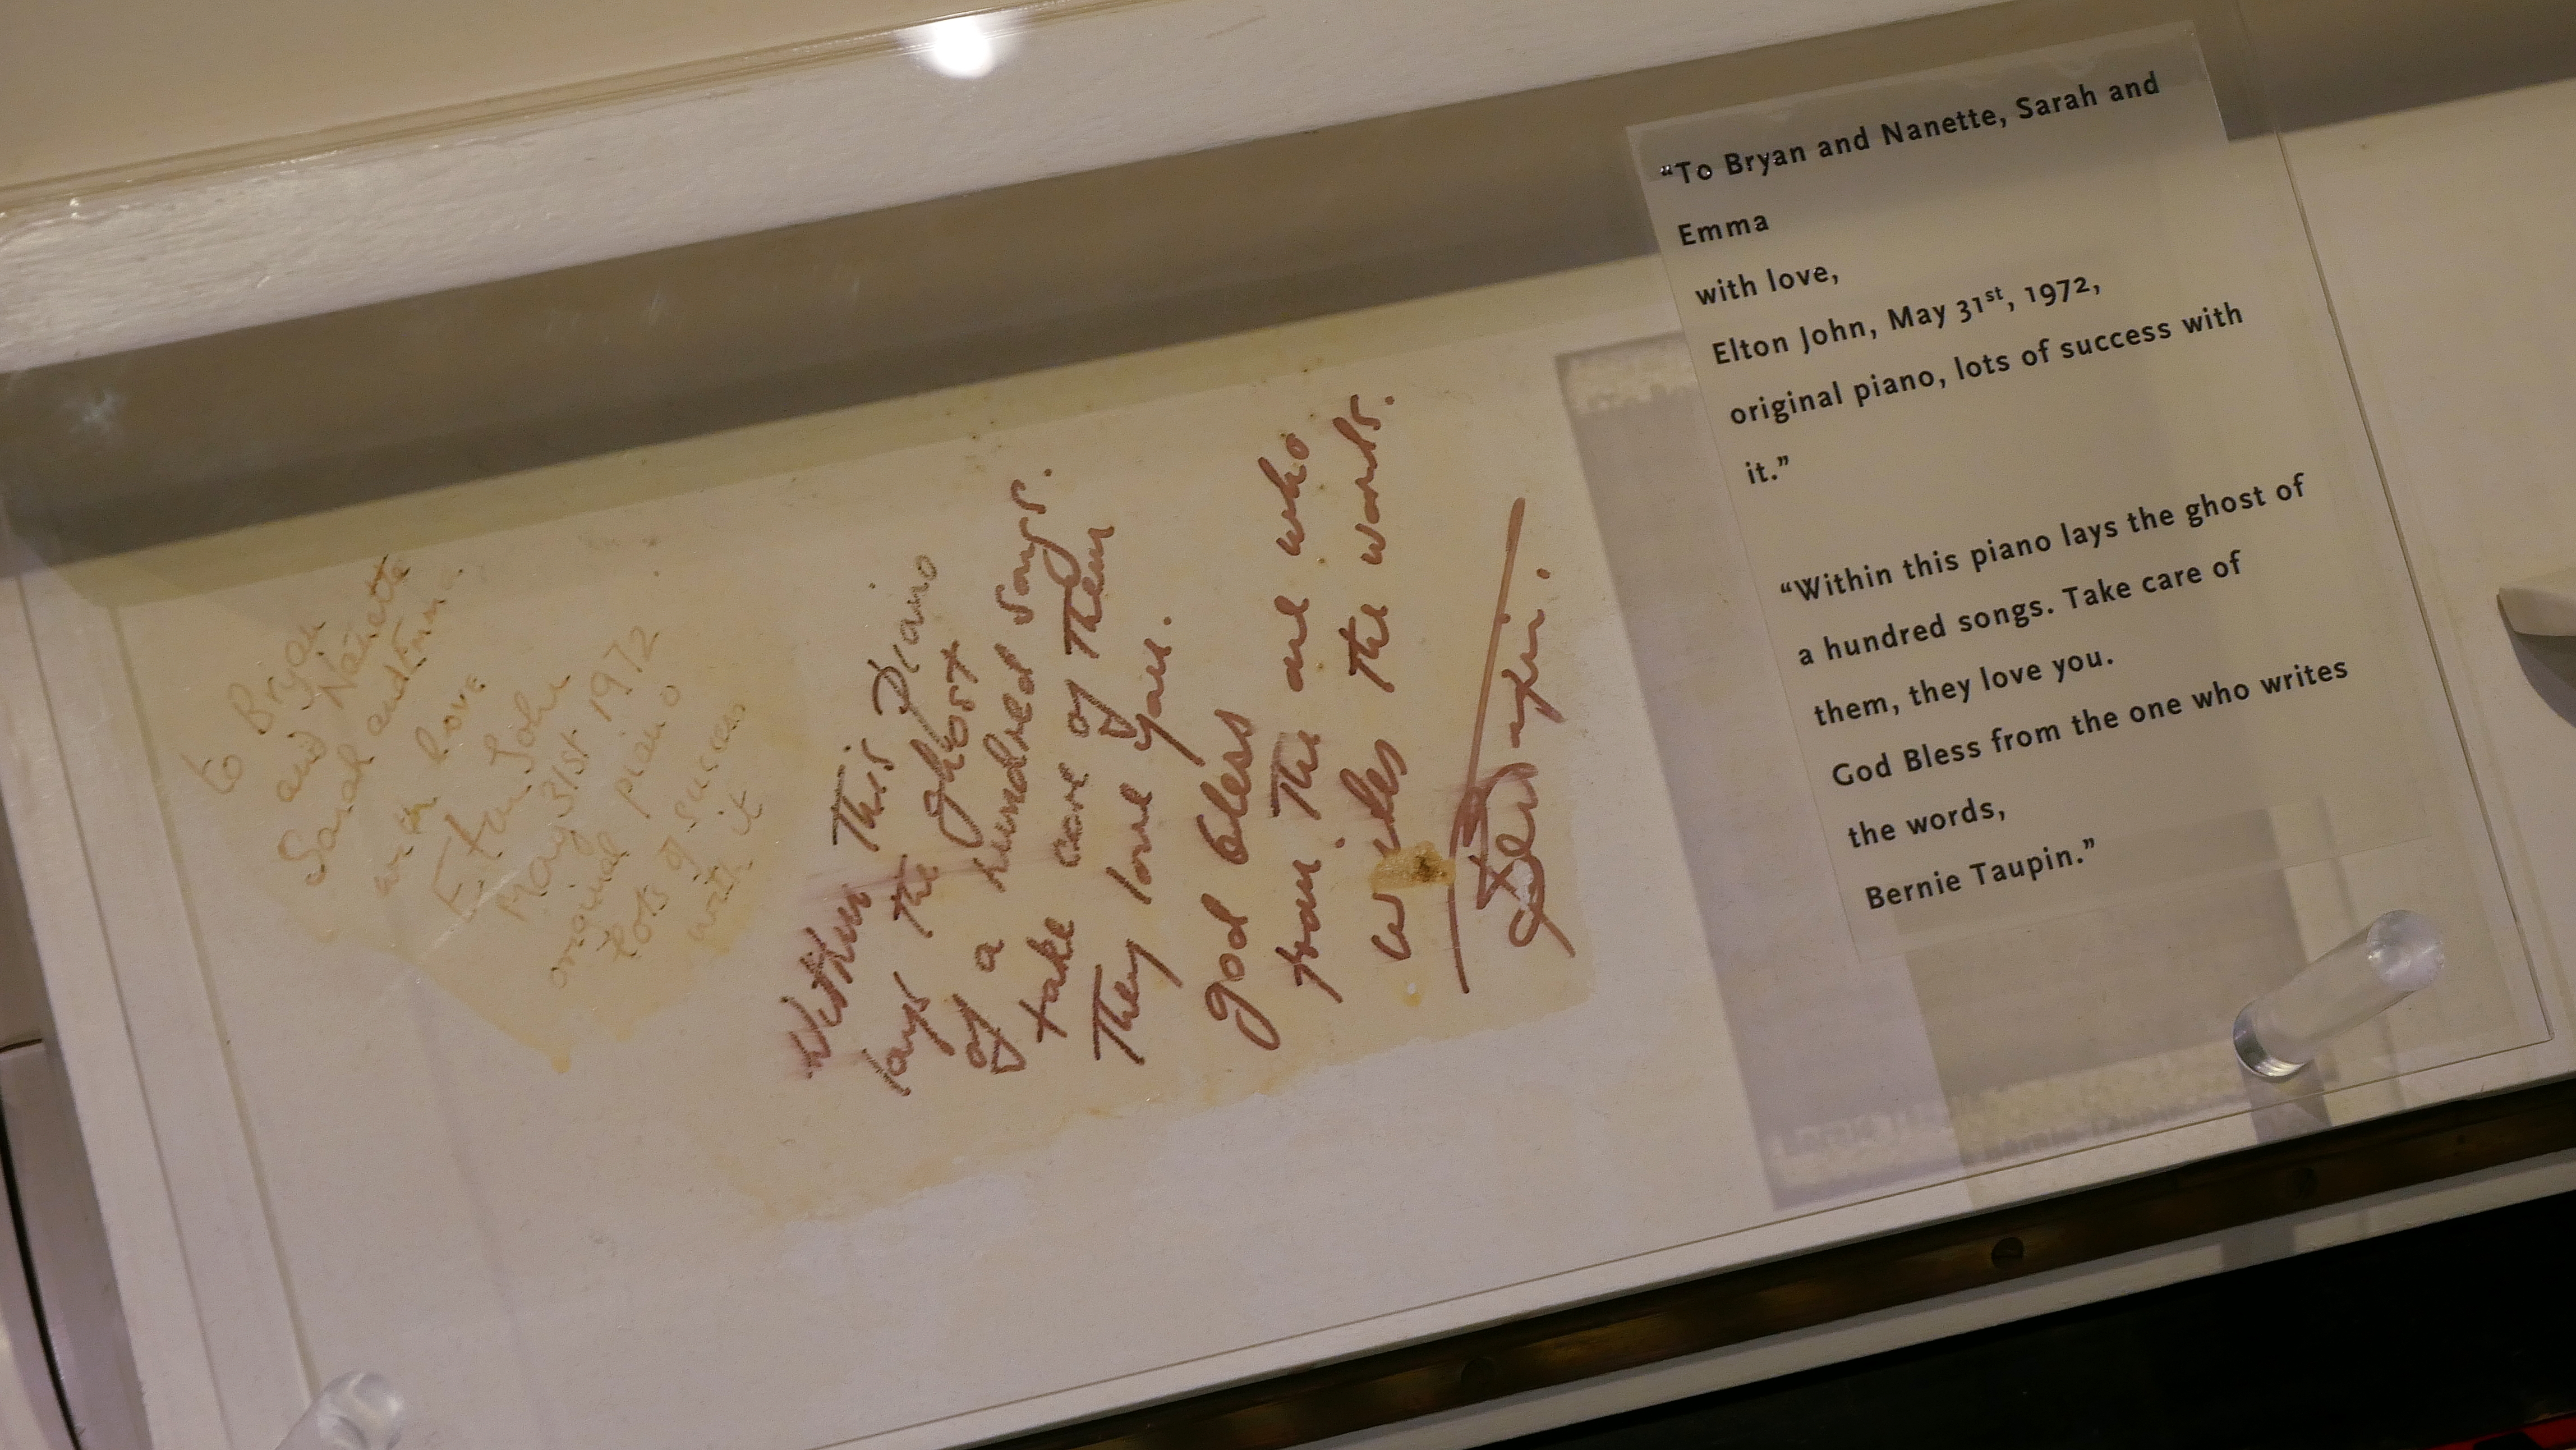 to Bryan
and Nanette
Sarah and Emma
with love
Elton John
May 31st 1972
original piano
lots of success
with it
Within This Piano
lays the ghost
of a hundred songs.
take care of Them
They love you.
god bless
from The one who
writes the words.
Bernie Taupin.
“To Bryan and Nanette, Sarah and
Emma
with love,
Elton John, May 31st, 1972,
original piano, lots of success with
it.”
“Within this piano lays the ghost of
a hundred songs. Take care of
them, they love you.
God Bless from the one who writes
the words,
Bernie Taupin.”